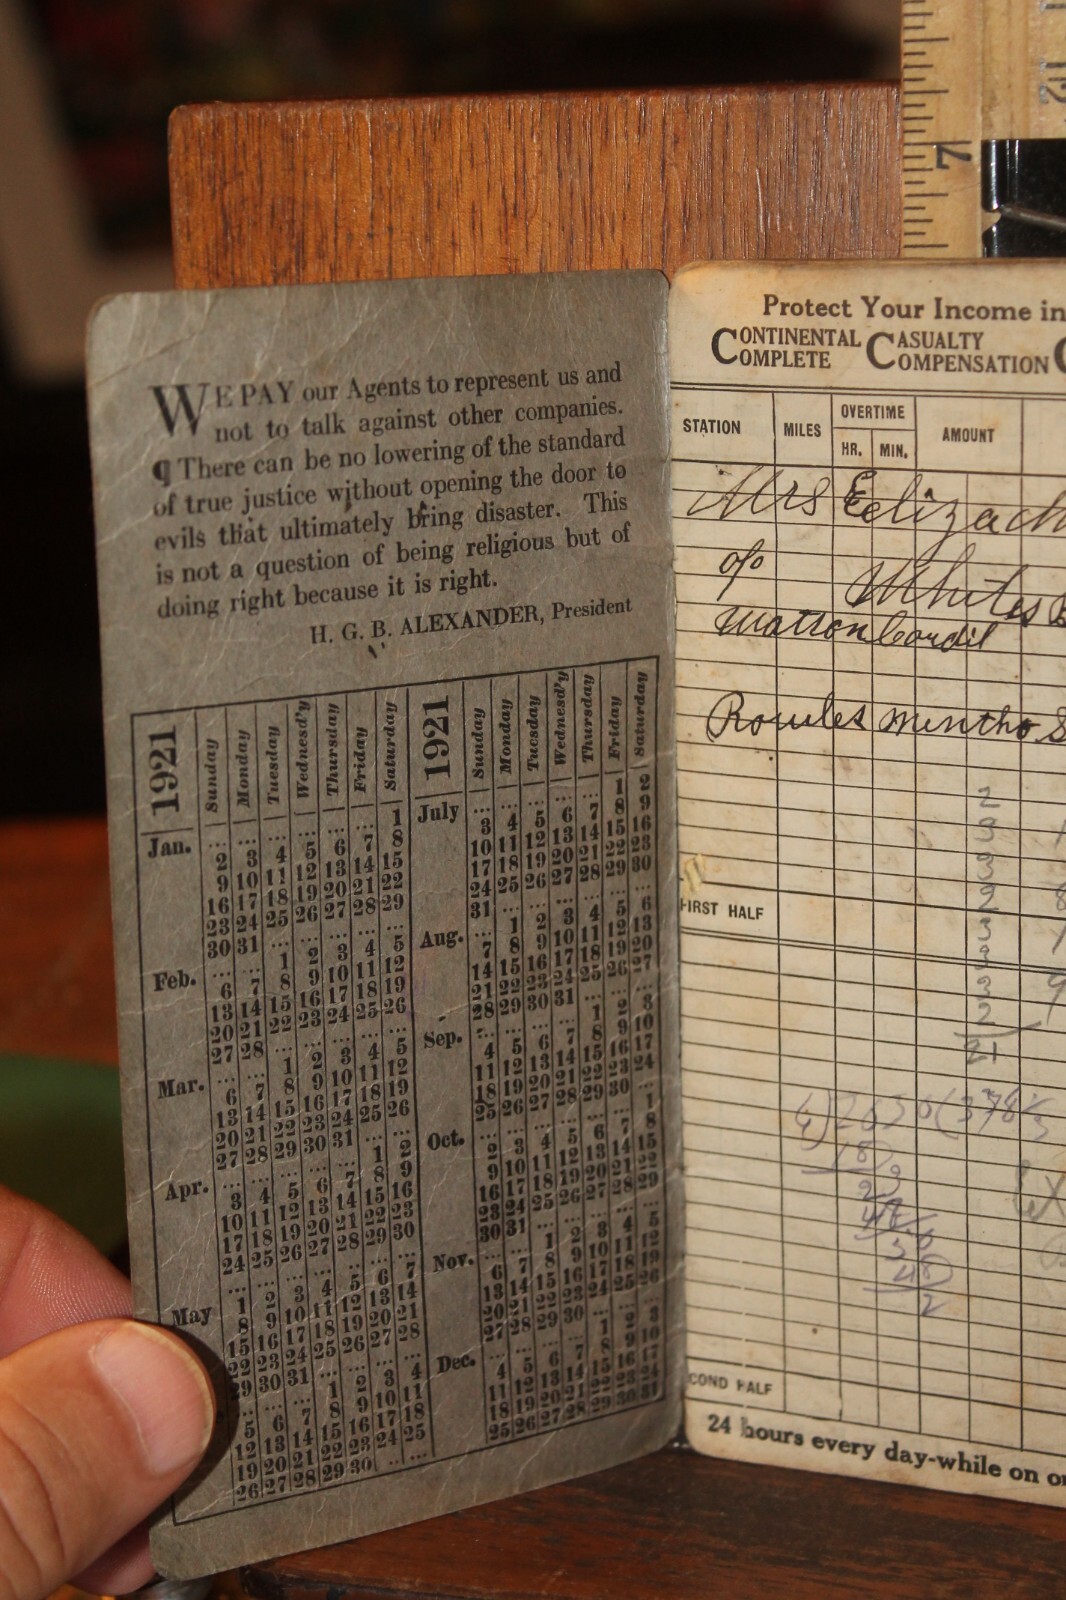 WE PAY our Agents to represent us and
not to talk against other companies.
¶ There can be no lowering of the standard
of true justice without opening the door to
evils that ultimately bring disaster. This
is not a question of being religious but of
doing right because it is right.
H. G. B. ALEXANDER, President
1921 Sunday Monday Tuesday Wednesd'y Thursday Friday Saturday
Jan. ... ... ... ... ... ... 1
2 3 4 5 6 7 8
9 10 11 12 13 14 15
16 17 18 19 20 21 22
23 24 25 26 27 28 29
30 31 ... ... ... ... ...
Feb. ... ... 1 2 3 4 5
6 7 8 9 10 11 12
13 14 15 16 17 18 19
20 21 22 23 24 25 26
27 28 ... ... ... ... ...
Mar. ... ... 1 2 3 4 5
6 7 8 9 10 11 12
13 14 15 16 17 18 19
20 21 22 23 24 25 26
27 28 29 30 31 ... ...
Apr. ... ... ... ... ... 1 2
3 4 5 6 7 8 9
10 11 12 13 14 15 16
17 18 19 20 21 22 23
24 25 26 27 28 29 30
May 1 2 3 4 5 6 7
8 9 10 11 12 13 14
15 16 17 18 19 20 21
22 23 24 25 26 27 28
29 30 31 ... ... ... ...
... ... ... 1 2 3 4
5 6 7 8 9 10 11
12 13 14 15 16 17 18
19 20 21 22 23 24 25
26 27 28 29 30 ... ...
1921 Sunday Monday Tuesday Wednesd'y Thursday Friday Saturday
July ... ... ... ... ... 1 2
3 4 5 6 7 8 9
10 11 12 13 14 15 16
17 18 19 20 21 22 23
24 25 26 27 28 29 30
31 ... ... ... ... ... ...
Aug. ... 1 2 3 4 5 6
7 8 9 10 11 12 13
14 15 16 17 18 19 20
21 22 23 24 25 26 27
28 29 30 31 ... ... ...
Sep. ... ... ... ... 1 2 3
4 5 6 7 8 9 10
11 12 13 14 15 16 17
18 19 20 21 22 23 24
25 26 27 28 29 30 ...
Oct. ... ... ... ... ... ... 1
2 3 4 5 6 7 8
9 10 11 12 13 14 15
16 17 18 19 20 21 22
23 24 25 26 27 28 29
30 31 ... ... ... ... ...
Nov. ... ... 1 2 3 4 5
6 7 8 9 10 11 12
13 14 15 16 17 18 19
20 21 22 23 24 25 26
27 28 29 30 ... ... ...
Dec. ... ... ... ... 1 2 3
4 5 6 7 8 9 10
11 12 13 14 15 16 17
18 19 20 21 22 23 24
25 26 27 28 29 30 31
Protect Your Income in
CONTINENTAL CASUALTY
COMPLETE COMPENSATION
STATION MILES OVERTIME AMOUNT
HR. MIN.
Mrs
c/o Whites
Mentho
FIRST HALF
21
COND HALF
24 hours every day-while on o
7
12